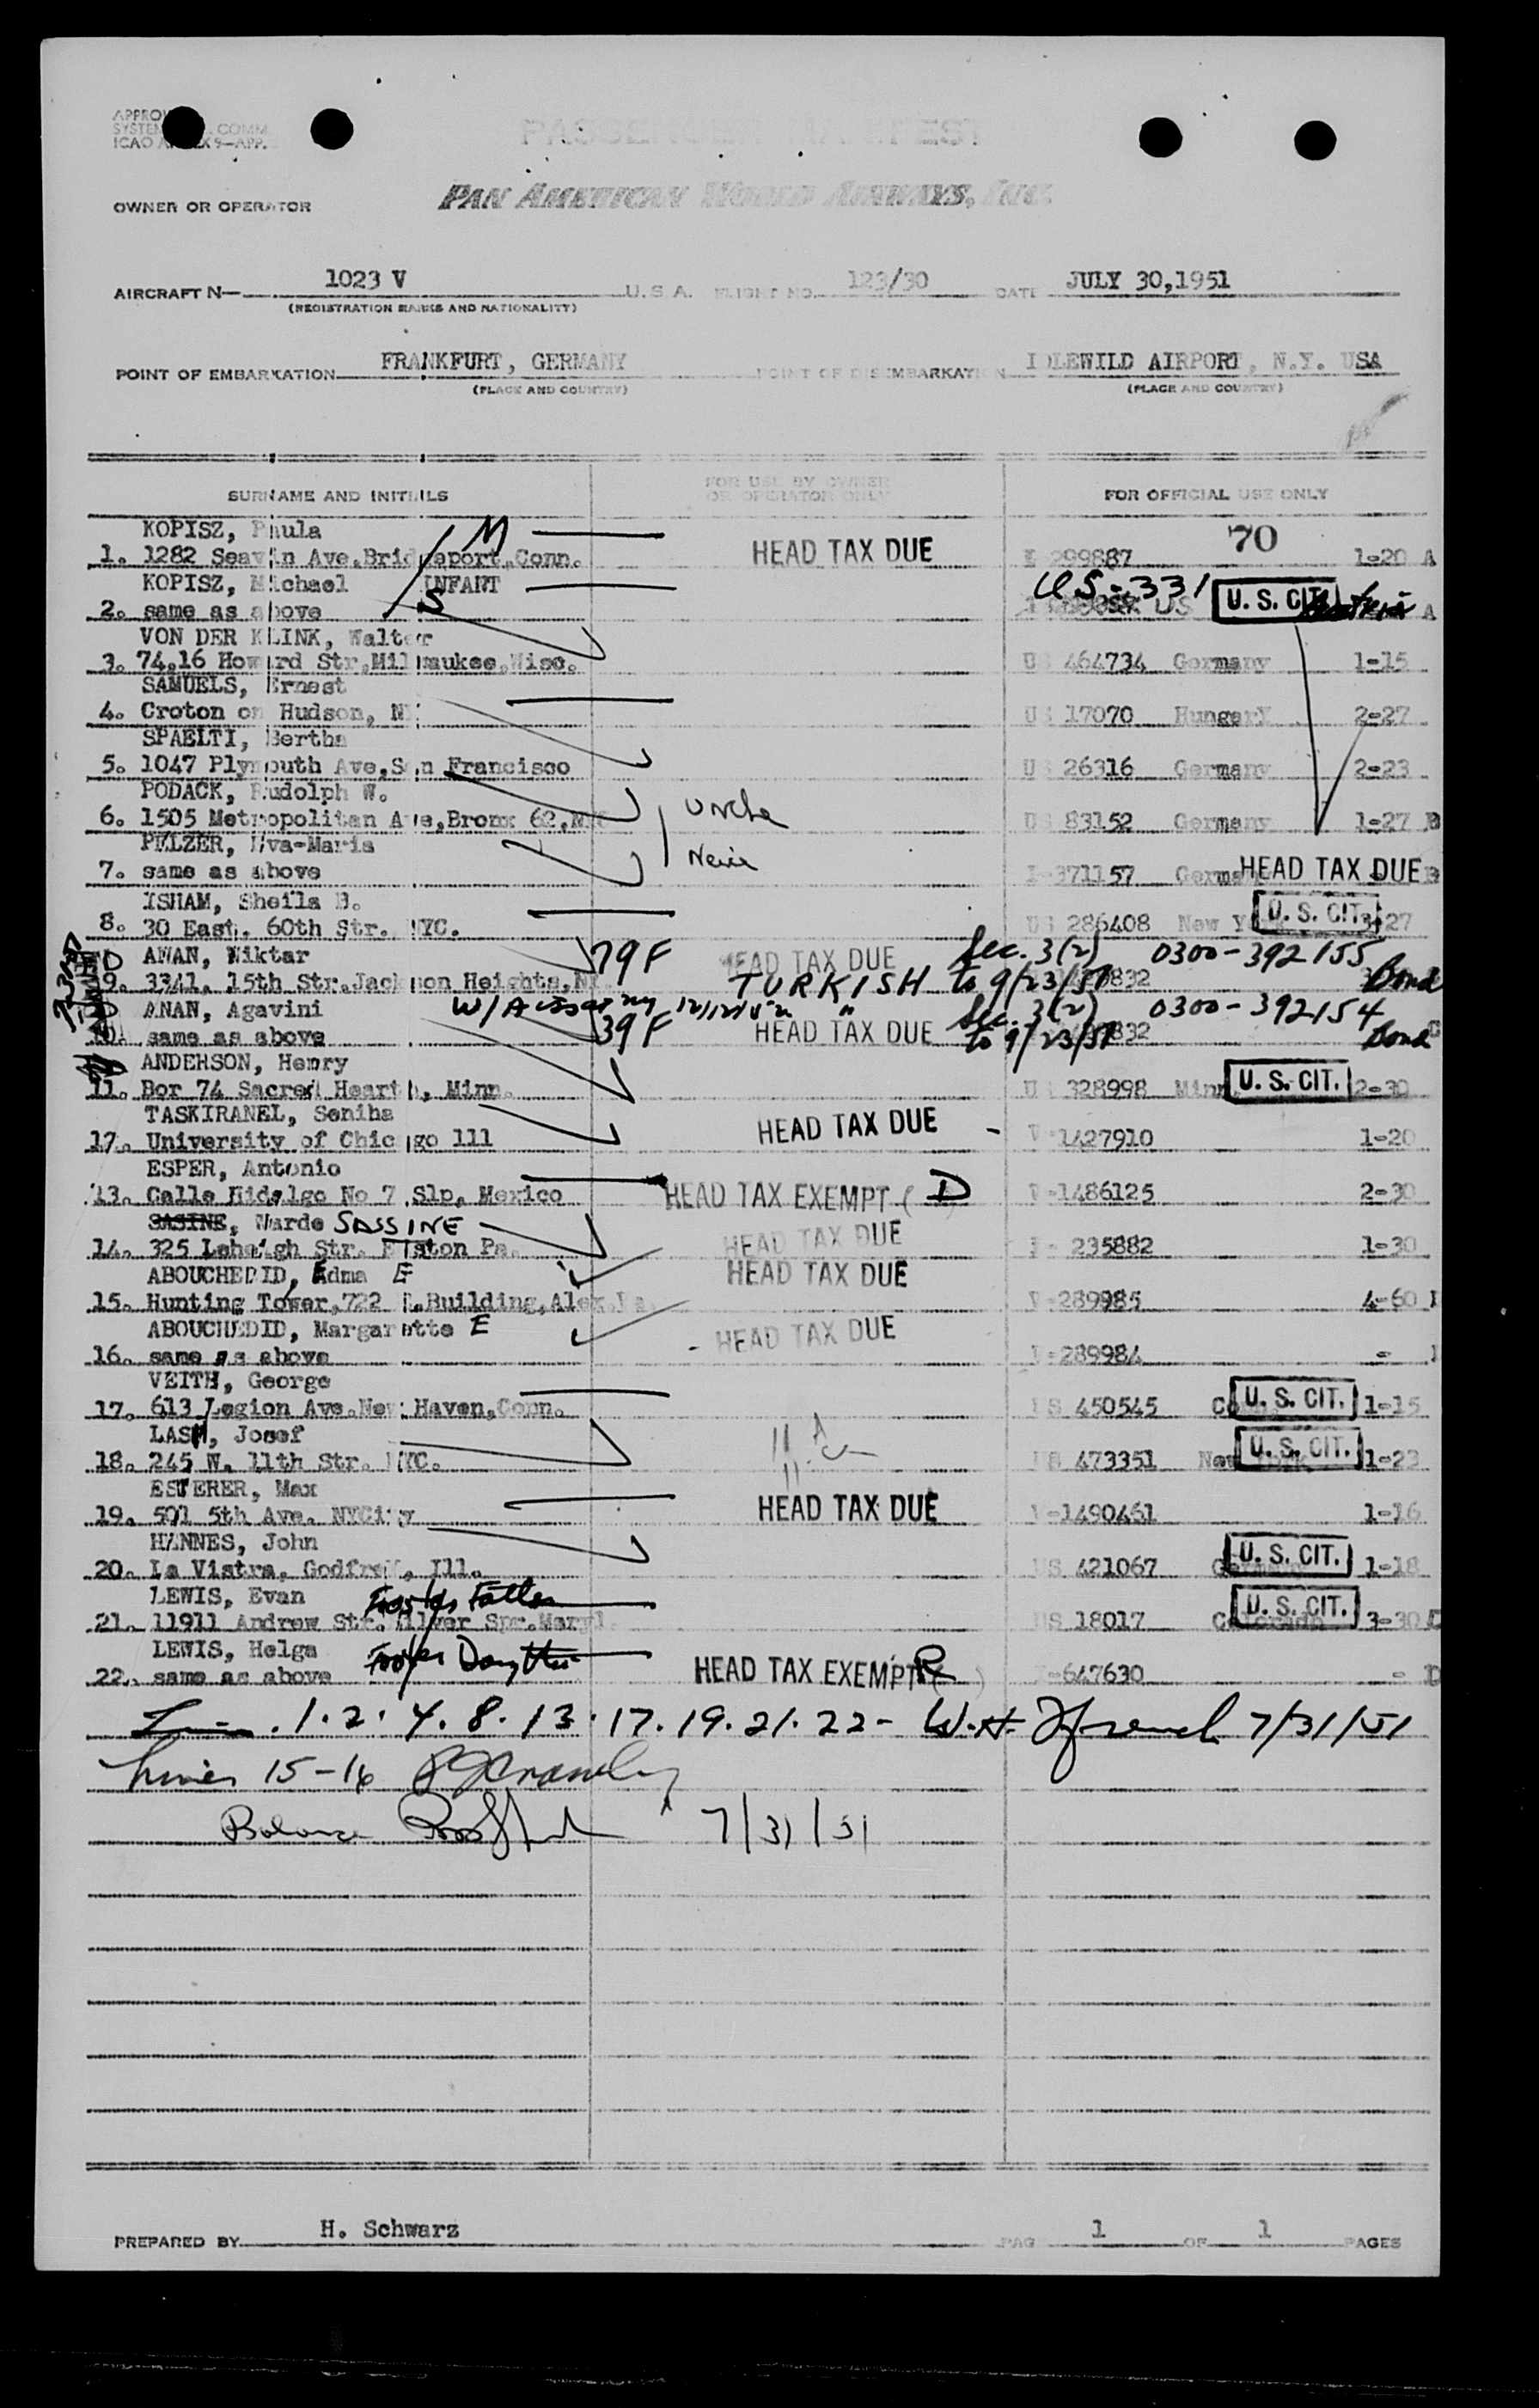 PASSENGER MANIFEST
OWNER OR OPERATOR PAN AMERICAN WORLD AIRWAYS, INC.
AIRCRAFT N— 1023 V U. S. A. FLIGHT NO. 123/30 DATE JULY 30,1951
(REGISTRATION MARKS AND NATIONALITY)
POINT OF EMBARKATION FRANKFURT, GERMANY POINT OF DISEMBARKATION IDLEWILD AIRPORT, N.Y. USA
(PLACE AND COUNTRY) (PLACE AND COUNTRY)
SURNAME AND INITIALS FOR USE BY OWNER OR OPERATOR ONLY FOR OFFICIAL USE ONLY
KOPISZ, Paula M 70
1. 1282 Ave.Bridgeport,Conn. HEAD TAX DUE 299887 1-20 A
KOPISZ, Michael INFANT US-331
2. same as above S US U. S. CIT. A
VON DER KLINK, Walter
3. 74.16 Howard Str,Milwaukee,Wisc. US 464734 Germany 1-15
SAMUELS, Ernest
4. Croton on Hudson, NY US 17070 Hungary 2-27
SPAELTI, Bertha
5. 1047 Plymouth Ave,San Francisco US 26316 Germany 2-23
PODACK, Rudolph W.
6. 1505 Metropolitan Ave,Bronx 62, Uncle US 83152 Germany 1-27 B
PELZER, Eva-Maria
7. same as above 371157 HEAD TAX DUE B
ISHAM, Sheila B.
8. 30 East. 60th Str. NYC. US 286408 New U. S. CIT. 27
ANAN, Wiktar 79 F HEAD TAX DUE Sec. 3(2) 0300-392155
9. 3341. 15th Str.Jackson Heights, TURKISH to 9/23/51 832 Bond
ANAN, Agavini 39 F " Sec. 3(2) 0300-392154
10. same as above HEAD TAX DUE to 9/23/51 832 Bond
ANDERSON, Henry
11. Bor 74 Sacred Hearth, Minn. US 328998 U. S. CIT. 2-30
TASKIRANEL, Seniha
17. University of Chicago 111 HEAD TAX DUE V-1427910 1-20
ESPER, Antonio
13. Calle Hidalgo No 7 Slp, Mexico HEAD TAX EXEMPT ( D V-1486125 2-30
SASINE, Warde SASSINE
14. 325 Str. Pa. HEAD TAX DUE 235882 1-30
ABOUCHEDID, Edma E HEAD TAX DUE
15. Hunting Tower,722 Building, V-289985 4-60
ABOUCHEDID, Margarette E HEAD TAX DUE
16. same as above V-289984 -
VEITH, George
17. 613 Legion Ave.New Haven,Conn. US 450545 U. S. CIT. 1-15
LASH, Josef
18. 245 W. 11th Str. NYC. US 473351 New York U. S. CIT. 1-23
ESTERER, Max
19. 501 5th Ave. NYCity HEAD TAX DUE V-1490461 1-16
HANNES, John
20. La Vistra, Godfrey, Ill. US 421067 U. S. CIT. 1-18
LEWIS, Evan Foster Father
21. 11911 Andrew Str. Silver Spr.Maryl. US 18017 Colorado U. S. CIT. 3-30
LEWIS, Helga Foster Daughter
22. same as above HEAD TAX EXEMPT 647630 - D
1. 2. 4. 8. 13. 17. 19. 21. 22- W.H. 7/31/51
Lines 15-16
Balance 7/31/51
PREPARED BY H. Schwarz PAGE 1 OF 1 PAGES